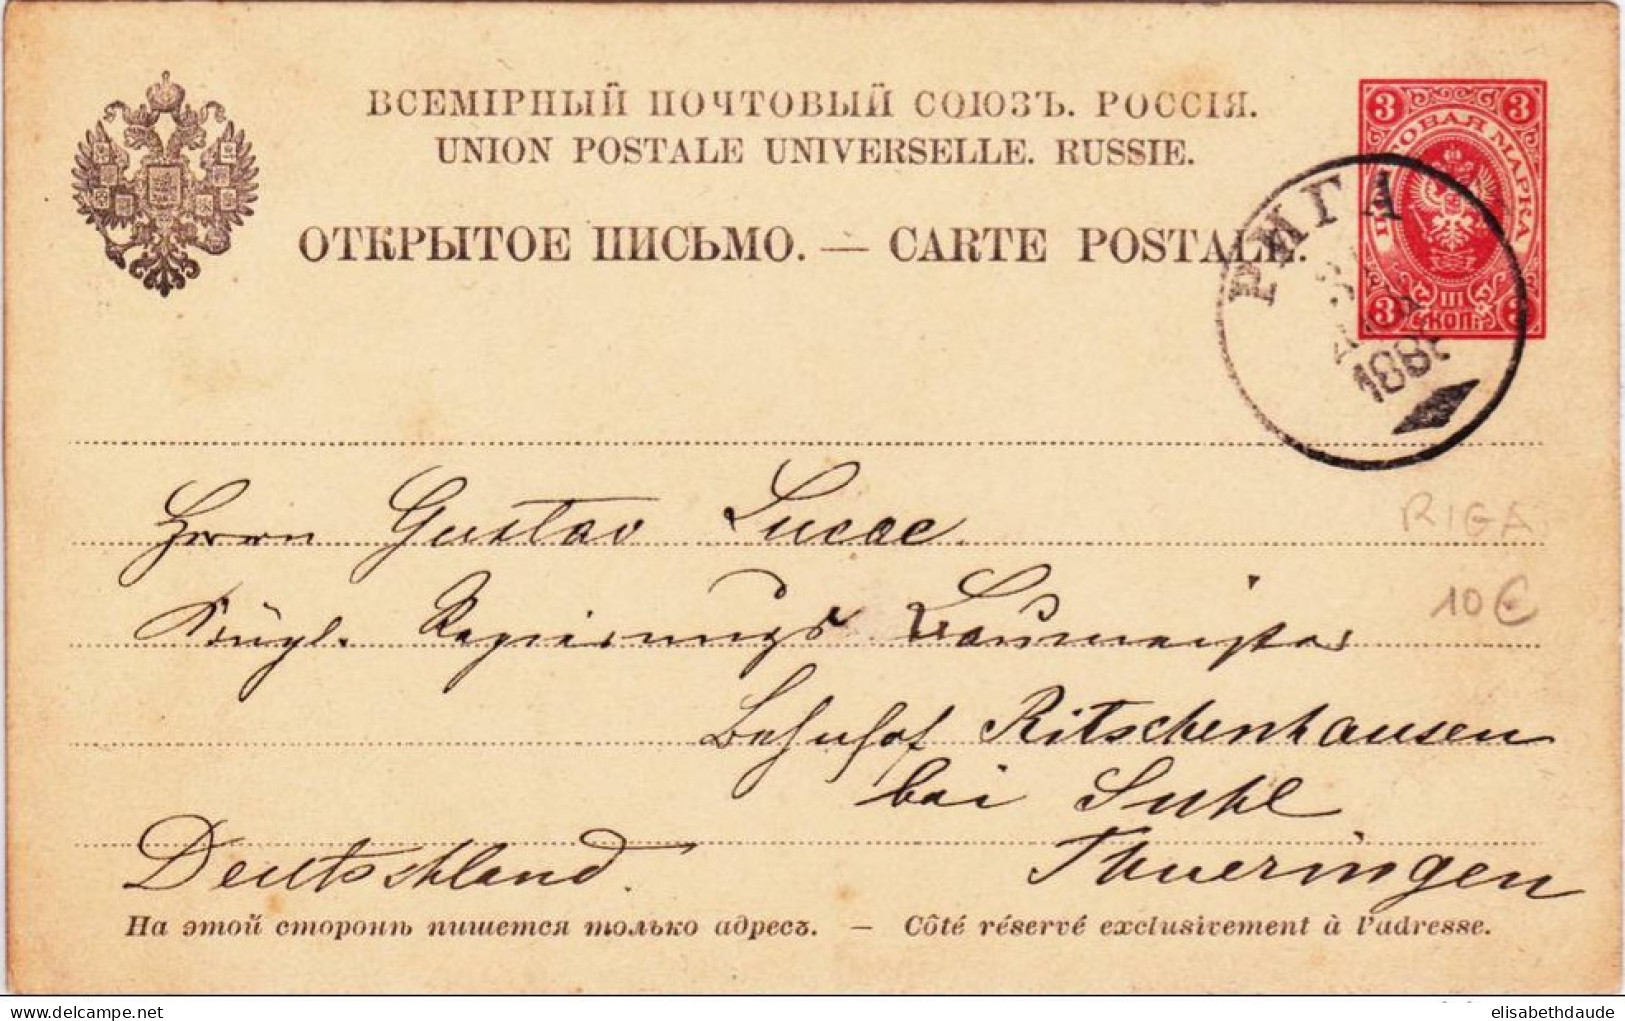 ВСЕМІРНЫЙ ПОЧТОВЫЙ СОЮЗЪ. РОССІЯ.
UNION POSTALE UNIVERSELLE. RUSSIE.
ОТКРЫТОЕ ПИСЬМО. — CARTE POSTALE.
3 3
ПОЧТОВАЯ МАРКА
3 III 3
КОП.
РИГА
188
Herrn Gustav Lucae
RIGA
10 €
Königl. Regierungs Baumeister
Bahnhof Ritschenhausen
bei Suhl
Thueringen
Deutschland.
На этой сторонѣ пишется только адресъ. — Côté réservé exclusivement à l'adresse.
delcampe.net
elisabethdaude